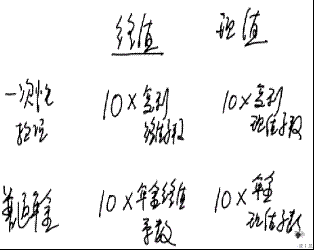 终值 现值
一次性 10×复利 10×复利
终值系数 现值系数
普通年金 10×年金终值 10×年金
系数 现值系数